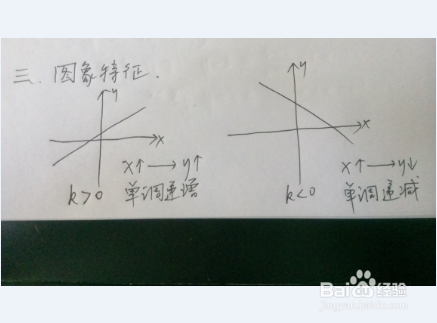 三. 图象特征.
y
x
x↑→y↑
k>0 单调递增
y
x
x↑→y↓
k<0 单调递减
Baidu经验